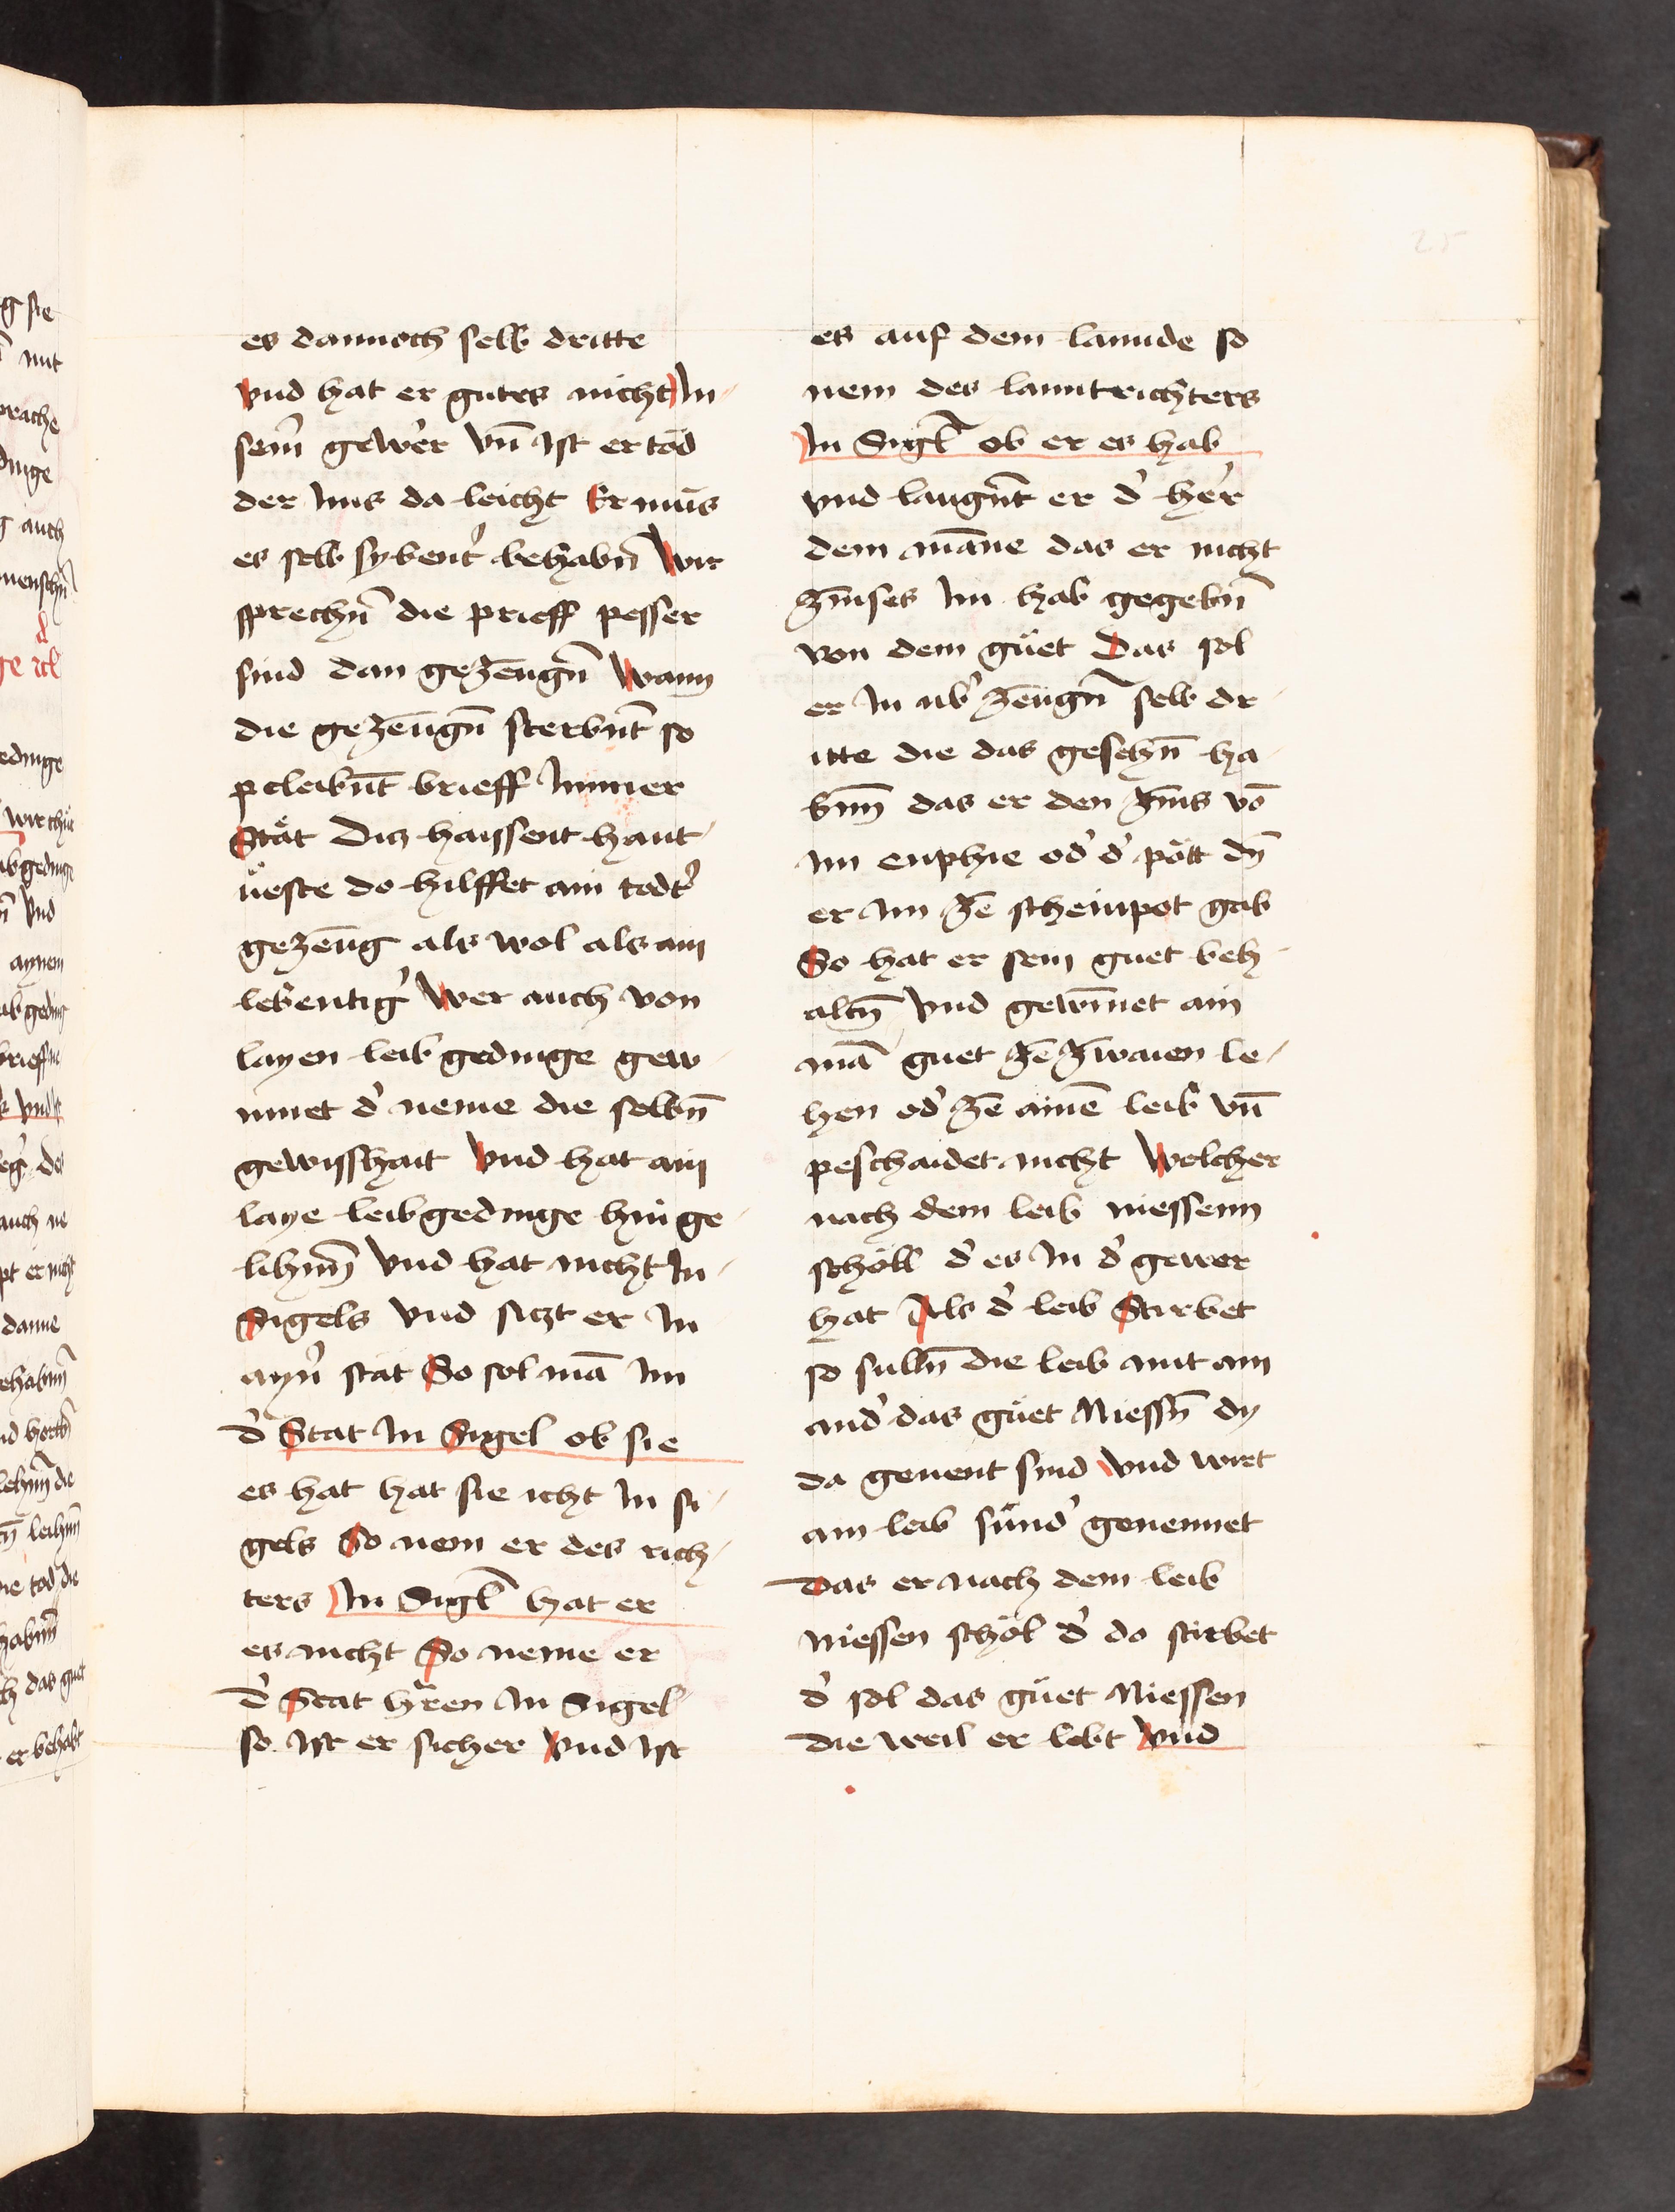 25
es dannoch selb dritte
vnd hat er gutes nicht In
sein̄ gewer vn̄ ist er tod
der Ims da leicht Er mus
es selb sybent' behabn̄ Wir
sprechn̄ die prieff pesser
sind dan gezeugn̄ Wann
die gezeugn̄ sterbnt̄ so
peleibnt̄ brieff Immer
Stät Diz haissent hant
ueste do hilffet ain todt'
gezeug als wol als ain
lebentig' Wer auch von
layen leibgedinge gew
innet d' neme die selbn̄
gewisshait Vnd hat ain
laye leibgedinge hin ge
lihnn̄ Vnd hat nicht In
Sigels Vnd siczt er In
ayn' stat So sol mā Im
d' Stat In Sigel ob sie
es hat hat sie icht In si
gels So nem er des rich
ters In Sigl̄ hat er
es nicht So neme er
d' Stat hr̄en In Sigel
so ist er sicher Vnd ist
es auf dem lannde so
nem des lanntrichters
In Sigl̄ ob er es hab
vnd laugnt̄ er d' her
dem māne das er nicht
zinses Im hab gegebn̄
von dem guet Das sol
er In vb' zeugn̄ selb dr
itte die das gesehn̄ ha
bnn̄ das er den zins vō
Im enphie od' d' pott dn̄
er Im ze scheinpot gab
So hat er sein guet beh
altn̄ Vnd gewinnet ain
mā guet ze zwaien le
hen od' ze ainē leib vn̄
peschaidet nicht Welcher
nach dem leib niessenn
schöll d' es In d' gewer
hat Als d' leib Stirbet
so sulln̄ die leib mit ain
and' das guet Niessn̄ dy
da genent sind Vnd wirt
ain leib sund' genennet
Das er nach dem leib
niessen schöl d' do stirbet
d' sol das guet Niessen
die weil er lebt Vnd